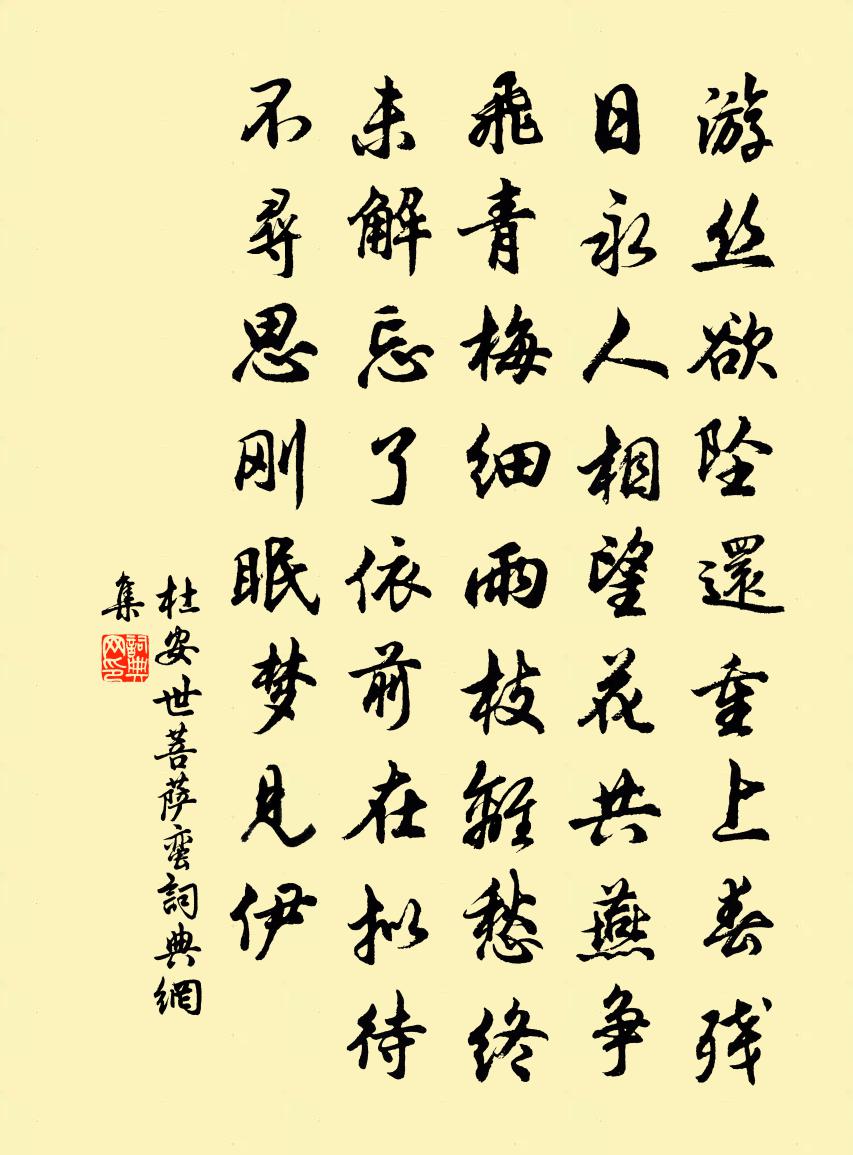 游丝欲坠還重上春残
日永人相望花共燕争
飛青梅细雨枝離愁终
未解忘了依前在拟待
不尋思刚眠梦見伊
杜安世菩萨蛮詞典網
集
詞典网印